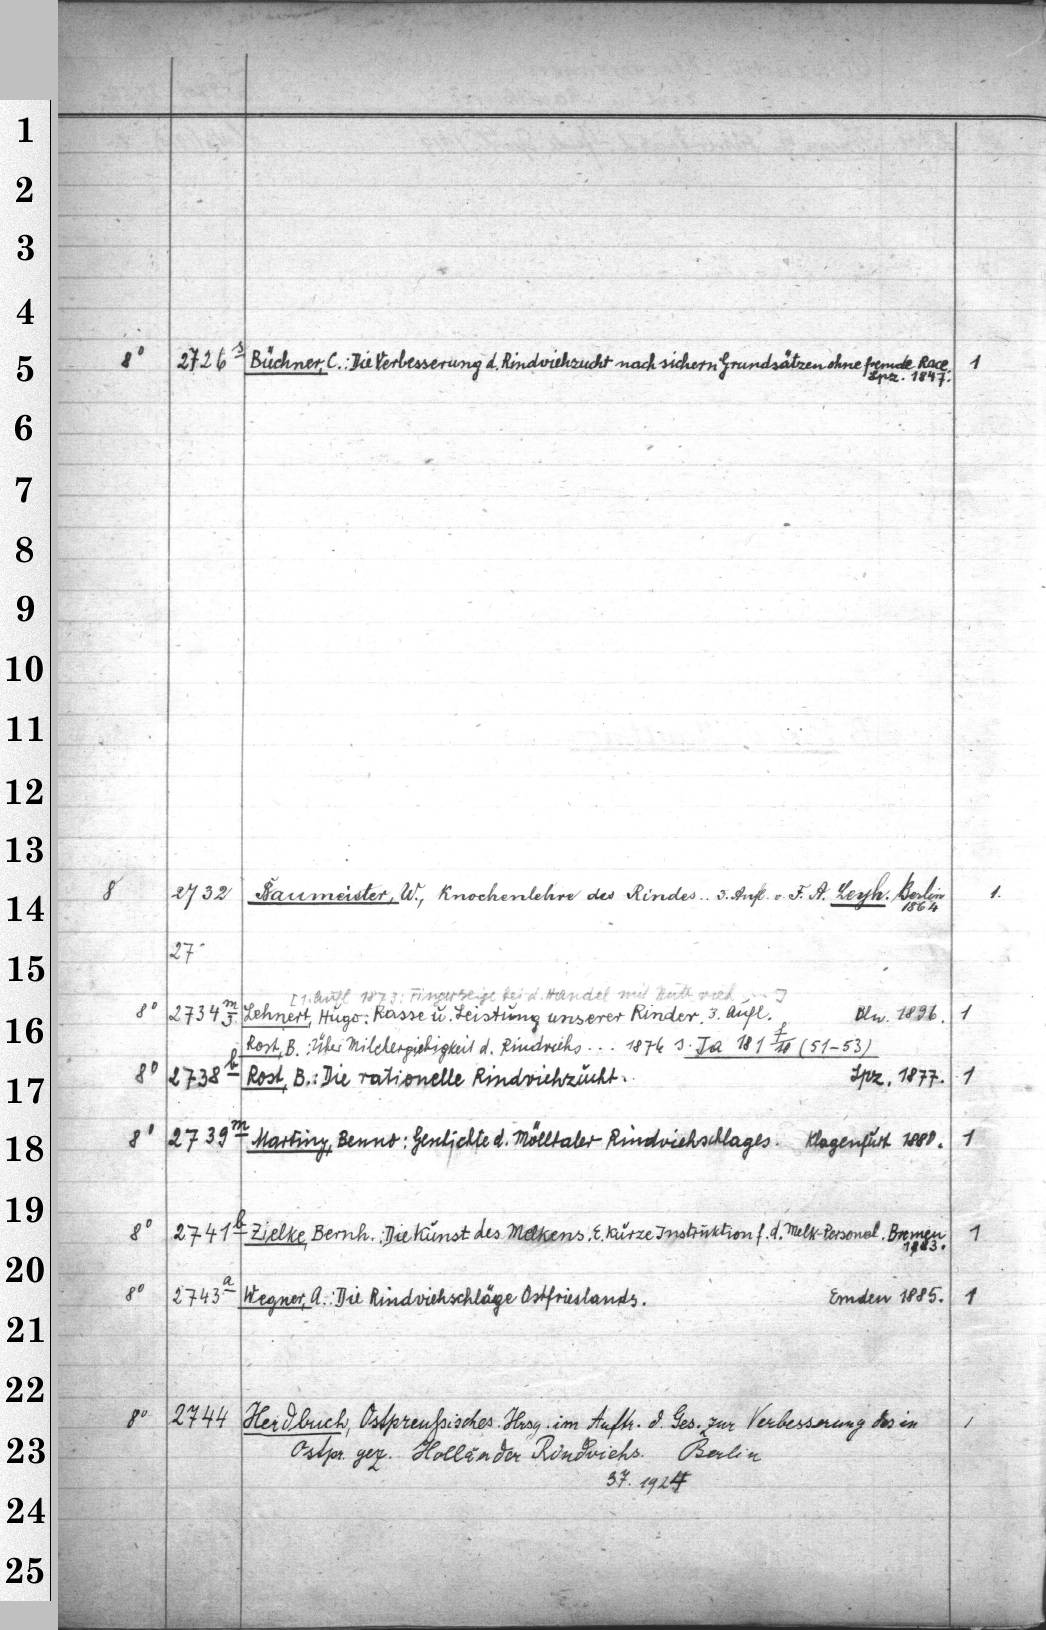 1
2
3
4
5
8° 2726 s Büchner, C.: Die Verbesserung d. Rindviehzucht nach sichern Grundsätzen ohne fremde Race. 1
Lpz. 1847.
6
7
8
9
10
11
12
13
14
8 2732 Baumeister, W., Knochenlehre des Rindes.. 3. Aufl. v. F. A. Leyh. Berlin 1.
1864
15
27
[1. Aufl 1873: Fingerzeige bei d. Handel mit
16
8° 2734 m/3 Lehnert, Hugo: Rasse u. Leistung unserer Rinder. 3. Aufl. Bln. 1896. 1
Rost, B.: Über Milchergiebigkeit d. Rindviehs... 1876 s. Ja 181 f/10 (51-53)
17
8° 2738 b Rost, B.: Die rationelle Rindviehzucht. Lpz. 1877. 1
18
8° 2739 m Martiny, Benno: Geschichte d. Mölltaler Rindviehschlages. Klagenfurt 1880. 1
19
8° 2741 b Zielke, Bernh.: Die Kunst des Melkens. E. kurze Instruktion f. d. Melk-Personal. Bremen 1
1883.
20
8° 2743 a Wegner, A.: Die Rindviehschläge Ostfrieslands. Emden 1885. 1
21
22
8° 2744 Herdbuch, Ostpreußisches. Hrsg. im Auftr. d. Ges. zur Verbesserung des in 1
23
Ostpr. gez. Holländer Rindviehs. Berlin
37. 1924
24
25